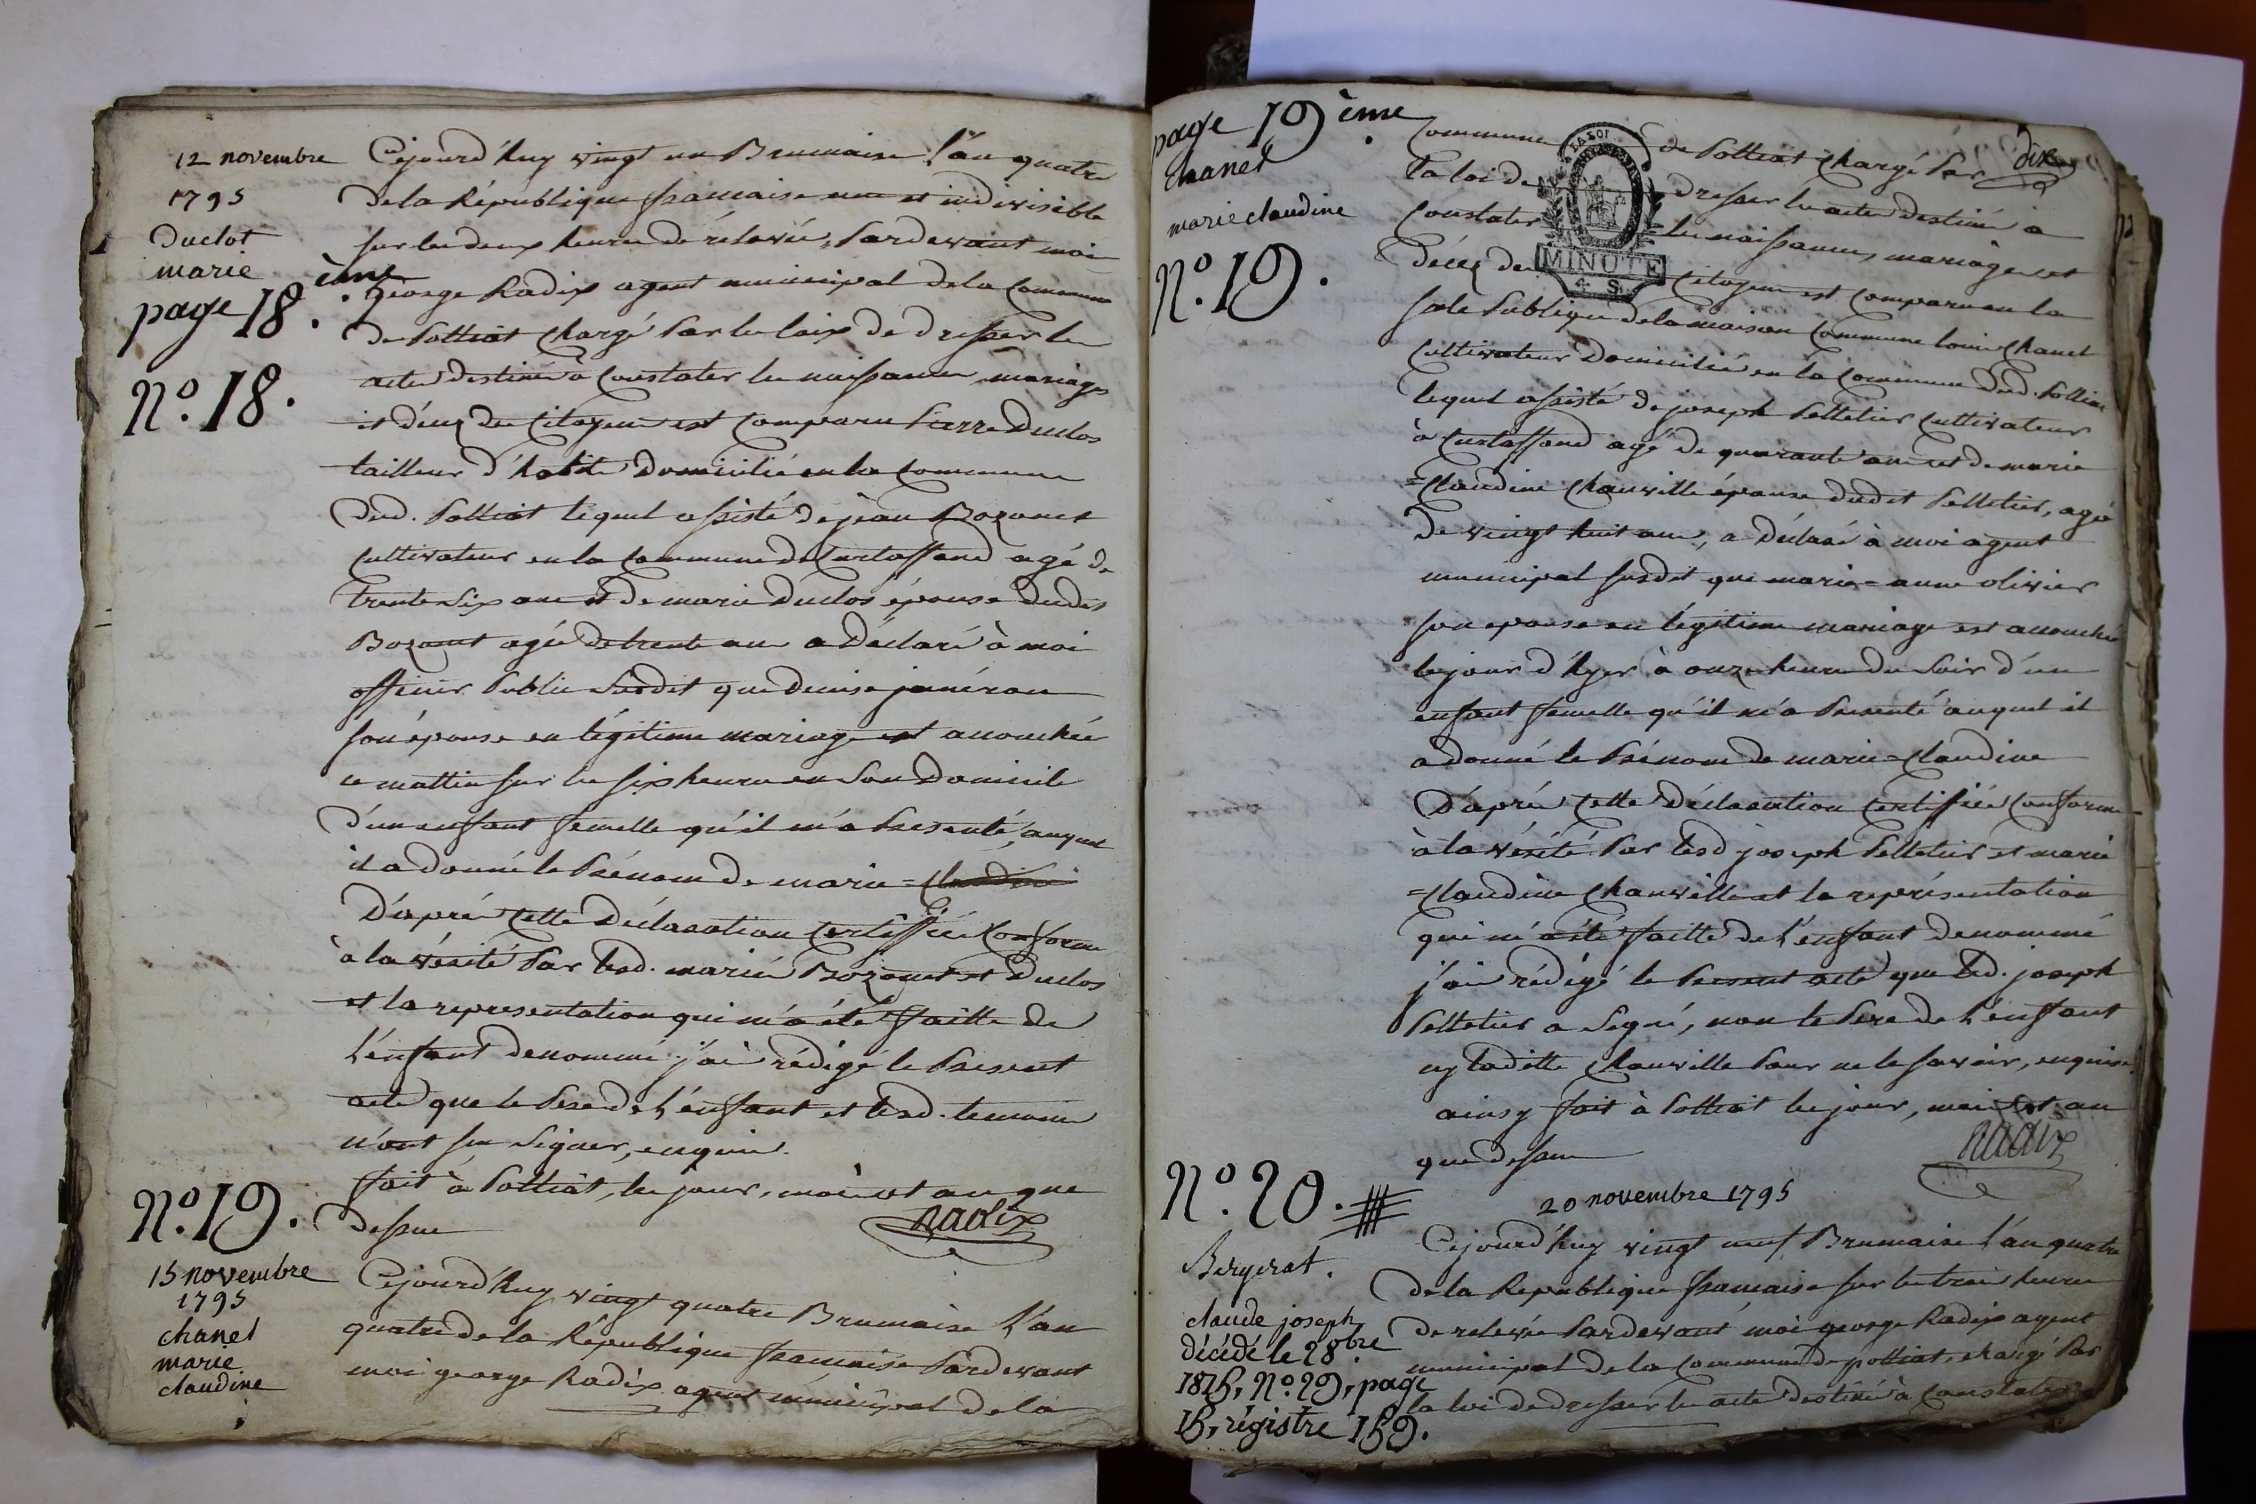 12 novembre
1795
duclot
marie
page 18.ème
N.º 18.
Cejourd'huy vingt un Brumaire l'an quatre
de la République francaise une et indivisible
sur les deux heures de rélevée, Pardevant moi
george Radix agent municipal de la Commune
de Polliat Chargé Par les loix de dresser les
actes destinés à Constater les naissances mariages
et décez des Citoyens est Comparu Pierre Duclos
tailleur d'habits Domicilié en la Commune
dud. Polliat lequel assisté de jean Bozonet
Cultivateur en la Commune de Curtaffond agé de
trente six ans et de marie Duclos épouse dudit
Bozonet agée de trente ans a Déclaré à moi
officier Public susdit que denise janéron
son épouse en légitime mariage est accouchée
ce mattin sur les six heures en son Domicile
d'un enfant femelle qu'il m'a Présenté, auquel
il a donné le Prénom de marie = Claudine
D'après cette Déclaration Certiffiée Conforme
à la vérité Par lesd. mariés Bozonet et Duclos
et la representation qui m'a été faitte de
l'enfant denommé j'ai rédigé le Présent
acte que le Pere de l'enfant et lesd. temoins
n'ont su signer, enquis.
fait à Polliat, les jour, mois et an que
dessus
Radix
N.º 19.
15 novembre
1795
chanel
marie
claudine
Cejourd'huy vingt quatre Brumaire l'an
quatre de la République francaise Pardevant
moi george Radix agent municipal de la
page 19ème.
chanel
marie claudine
N.º 19.
dix
LA LOI
MINUTE
4 S.
Commune de Polliat Chargé Par
la loi de dresser les actes destinés a
Constater les naissances, mariages et
décez des Citoyens est Comparu en la
sale Publique de la maison Commune louis Chanel
Cultivateur Domicilié en la Commune dud. Polliat
lequel assisté de joseph Pelletier Cultivateur
à Curtaffond agé de quarante ans et de marie
=Claudine Chanville épouse dudit Pelletier, agée
de vingt huit ans, a Déclaré à moi agent
municipal susdit que marie=anne olivier
son epouse en légitime mariage est accouchée
le jour d'hyer à onze heures du soir d'un
enfant femelle qu'il m'a Presenté auquel il
a donné le Prénom de marie=Claudine
D'après cette Déclaration Certiffiée Conforme
à la vérité Par lesd joseph Pelletier et marie
=Claudine Chanville et la représentation
qui m'a été faitte de l'enfant denommé
j'ai rédigé le Present acte que led. joseph
Pelletier a signé, non le Pere de l'enfant
ny laditte Chanville Pour ne le savoir, enquis.
ainsy fait à Polliat les jour, mois et an
que dessus
Radix
N.º 20.
20 novembre 1795
Bergerat.
claude joseph
décédé le 28bre
1815, N.º 29, page
15, régistre 159.
Cejourd'huy vingt neuf Brumaire l'an quatre
de la République francaise sur les trois heures
de relevée Pardevant moi george Radix agent
municipal de la Commune de polliat, chargé Par
la loi de dresser les actes destinés à Constater